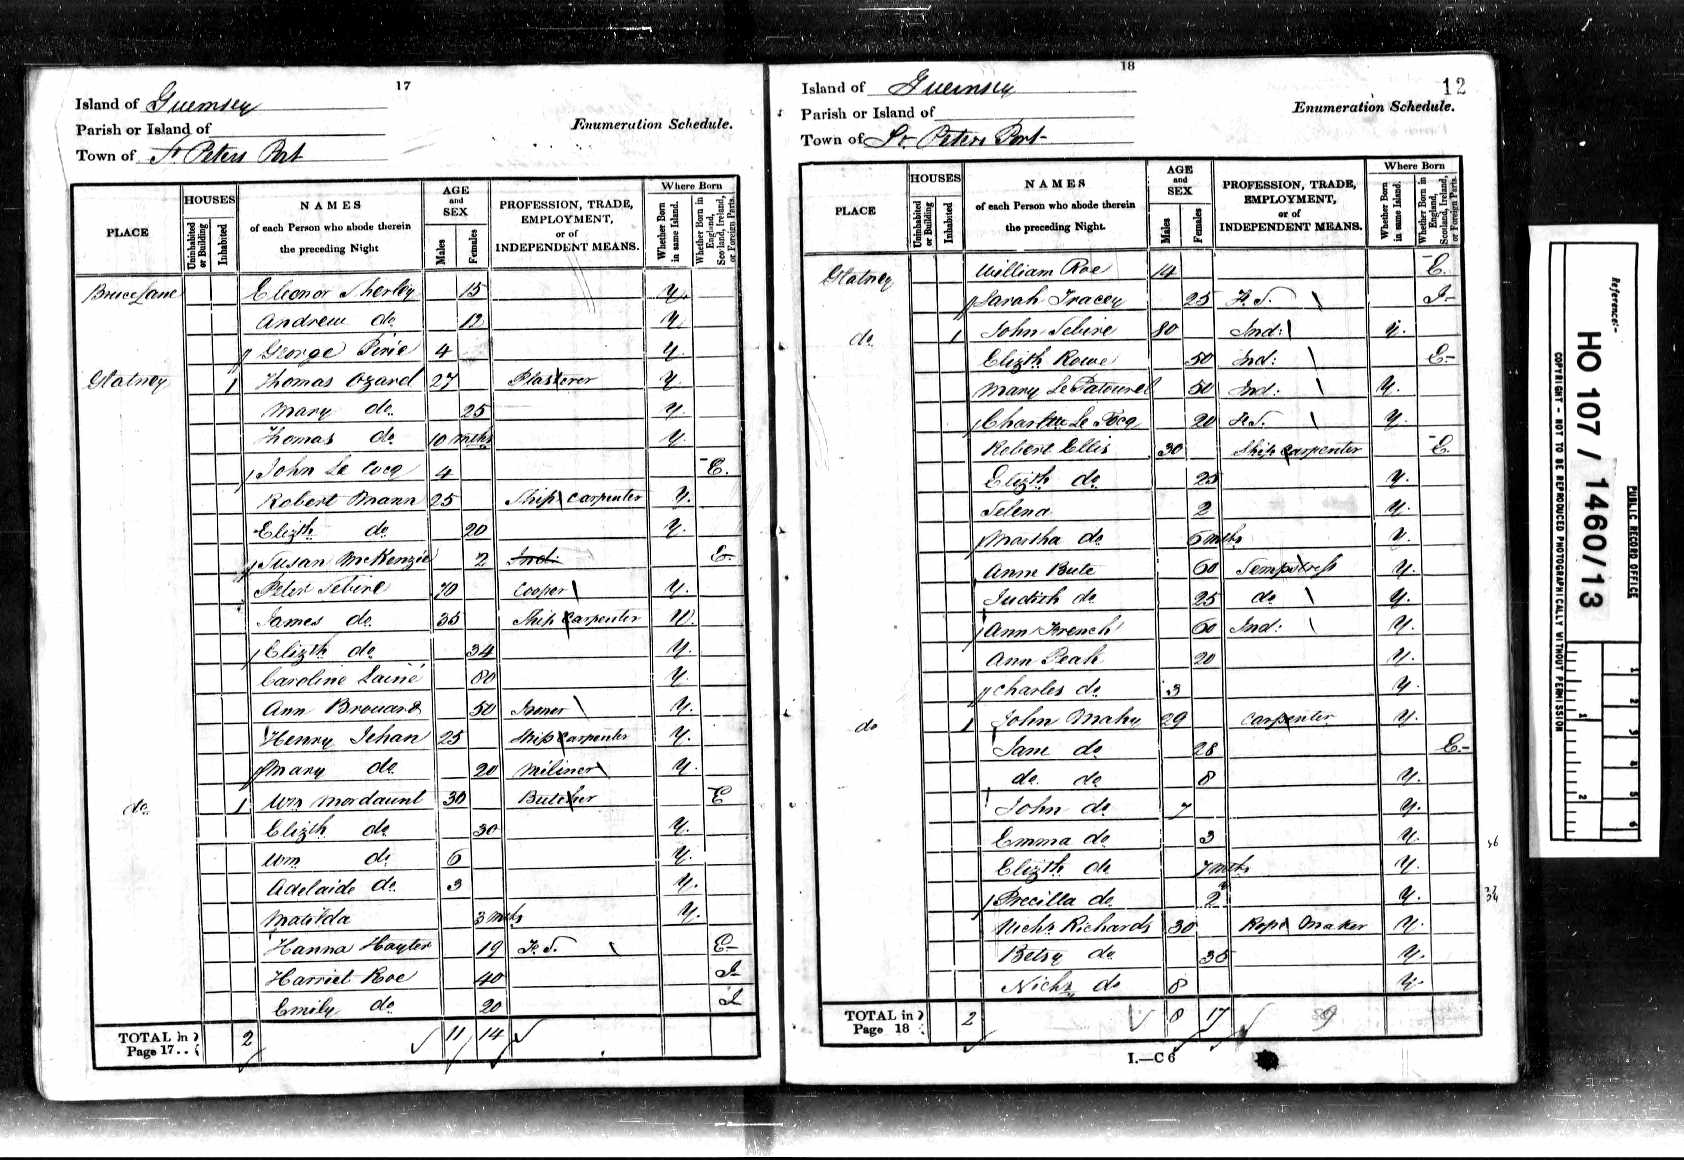 17
Island of Guernsey
Parish or Island of
Enumeration Schedule.
Town of St Peters Port
PLACE
HOUSES
Uninhabited or Building
Inhabited
NAMES
of each Person who abode therein
the preceding Night
AGE
and
SEX
Males
Females
PROFESSION, TRADE,
EMPLOYMENT,
or of
INDEPENDENT MEANS.
Where Born
Whether Born in same Island.
Whether Born in England, Scotland, Ireland, or Foreign Parts.
Bruce Lane Eleonor Sherley 15 Y.
Andrew do 12 Y
George Pirie 4 Y.
Glatney 1 Thomas Ozard 27 Plasterer Y.
Mary do. 25 Y.
Thomas do. 10 mths Y.
John Le Cocq 4 E.
Robert Mann 25 Ship Carpenter Y.
Elizth do 20 Y.
Susan McKenzie 2 Ind. E.
Peter Sebire 70 Cooper Y.
James do. 35 Ship Carpenter Y.
Elizth do. 34 Y.
Caroline Lainé 80 Y.
Ann Brouard 50 Ironer Y.
Henry Jehan 25 Ship Carpenter Y.
Mary do. 20 Miliner Y.
do. 1 Wm Mordaunt 30 Butcher E
Elizth do. 30 Y.
Wm do. 6 Y.
Adelaide do. 3 Y.
Matilda 3 mths Y.
Hanna Hayter 19 F.S. E
Harriet Roe 40 I
Emily do 20 I
TOTAL in
Page 17.. 2 11 14
18
12
Island of Guernsey
Parish or Island of
Enumeration Schedule.
Town of St Peters Port
PLACE
HOUSES
Uninhabited or Building
Inhabited
NAMES
of each Person who abode therein
the preceding Night.
AGE
and
SEX
Males
Females
PROFESSION, TRADE,
EMPLOYMENT,
or of
INDEPENDENT MEANS.
Where Born
Whether Born in same Island.
Whether Born in England, Scotland, Ireland, or Foreign Parts.
Glatney William Roe 14 E.
Sarah Tracey 25 F.S. I
do. 1 John Sebire 80 Ind: Y.
Elizth Rowe 50 Ind: E
Mary Le Patourel 50 Ind: Y.
Charltte Le Tocq 20 F.S. Y.
Robert Ellis 30 Ship Carpenter E.
Elizth do. 25 Y.
Selena 2 Y.
Martha do. 6 mths Y.
Anne Bute 60 Sempstress Y.
Judith do. 25 do Y.
Ann French 60 Ind: Y.
Ann Peak 20 Y.
Charles do 3 Y.
do 1 John Mahy 29 Carpenter Y.
Jane do. 28 E
do. do. 8 Y.
John do. 7 Y.
Emma do. 3 Y.
Elizth do. 7 mths Y.
Precilla do. 2 Y.
Nichs Richards 30 Rope Maker Y.
Betsy do. 35 Y.
Nichs do 8 Y.
TOTAL in
Page 18 2 8 17 9
I.—C 6
Reference:-
HO 107 / 1460/13
PUBLIC RECORD OFFICE
COPYRIGHT - NOT TO BE REPRODUCED PHOTOGRAPHICALLY WITHOUT PERMISSION
1
2
1
2
3
4
5
6